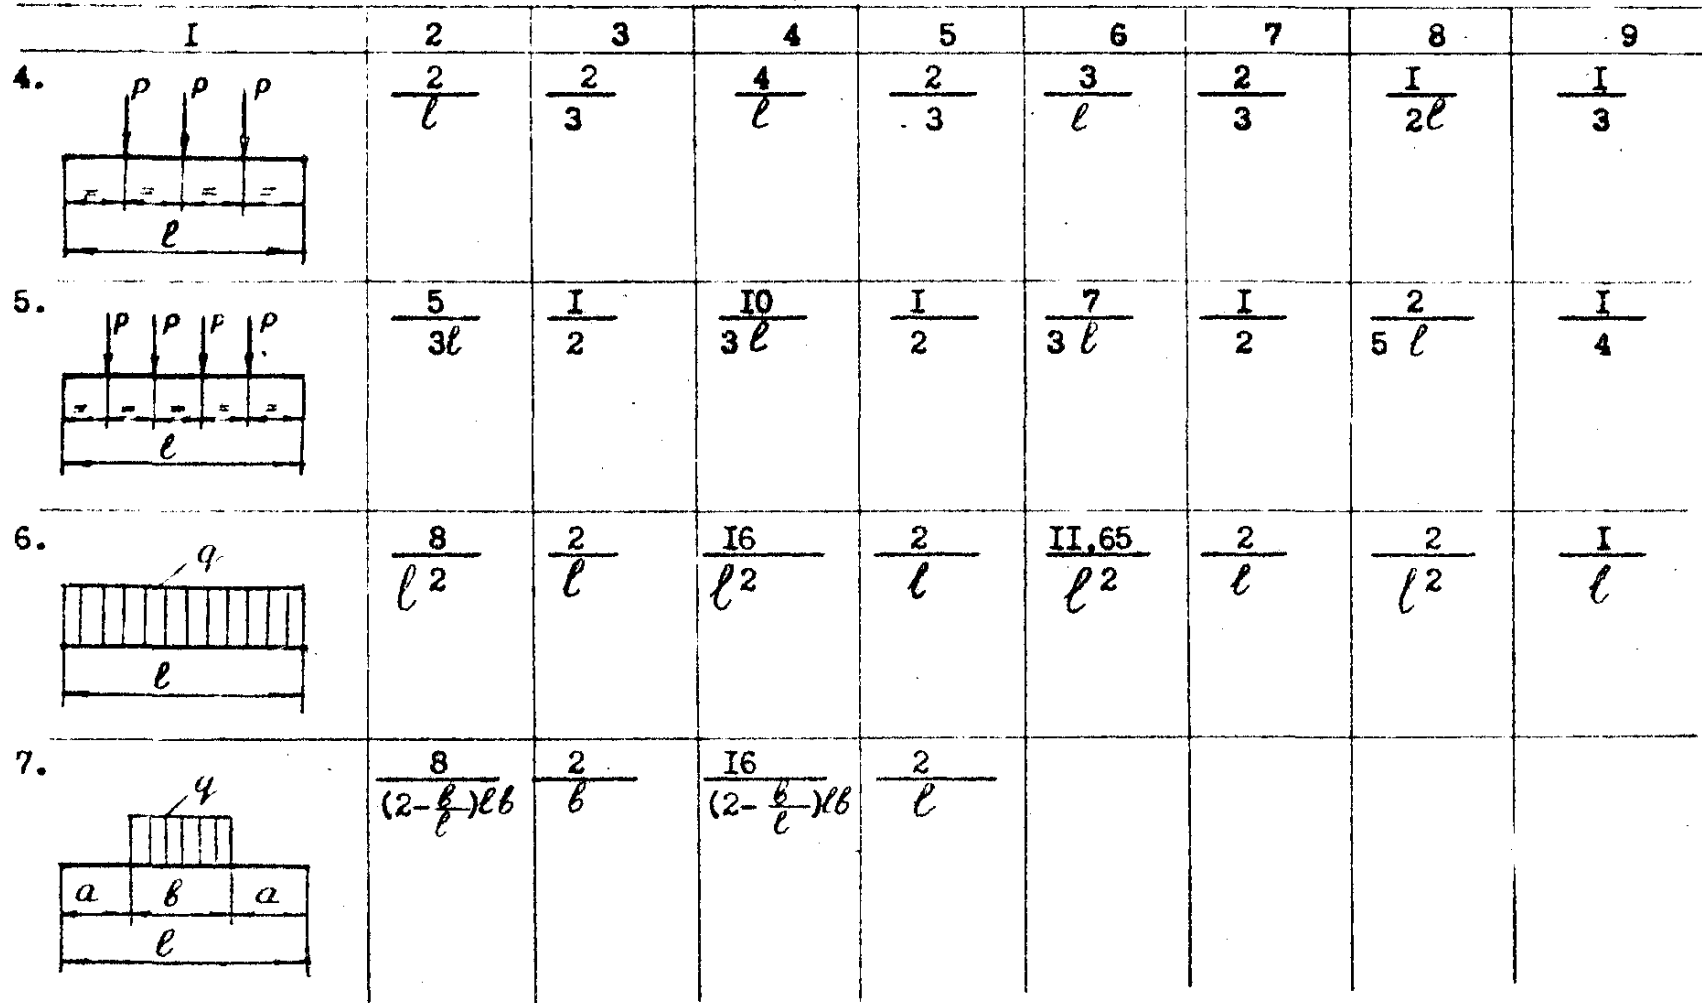 I 2 3 4 5 6 7 8 9
4. P P P l 2/l 2/3 4/l 2/3 3/l 2/3 I/2l I/3
5. P P P P l 5/3l I/2 I0/3l I/2 7/3l I/2 2/5l I/4
6. q l 8/l² 2/l I6/l² 2/l II,65/l² 2/l 2/l² I/l
7. q a в a l 8/(2-в/l)lв 2/в I6/(2-в/l)lв 2/l